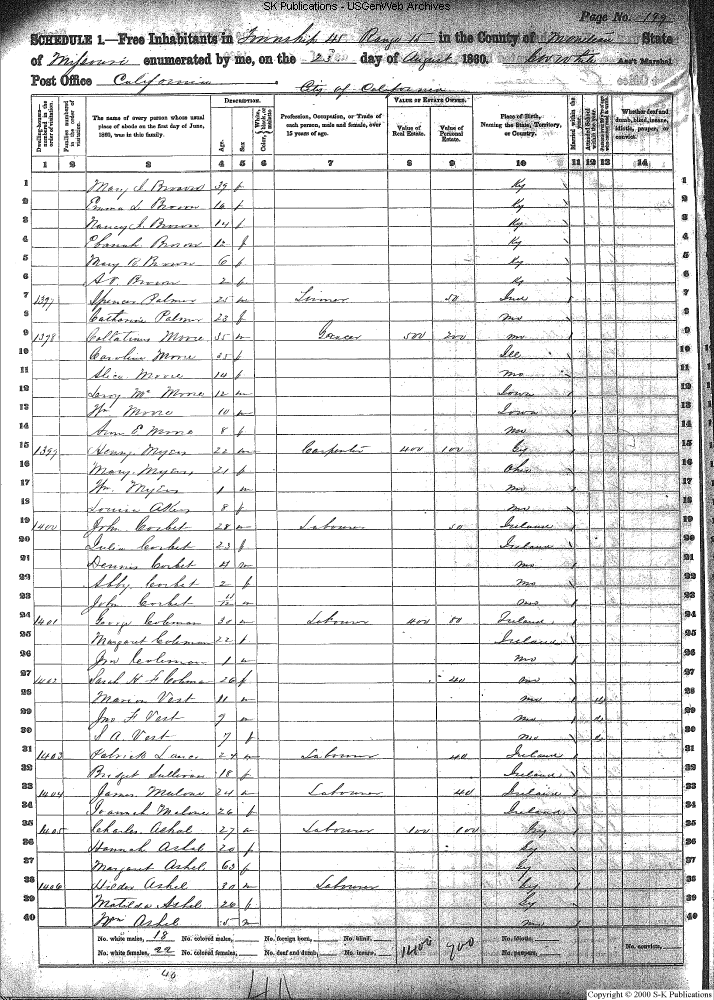 SK Publications - USGenWeb Archives
Page No. 199
SCHEDULE 1.—Free Inhabitants in Township 45 Range 15 in the County of Moniteau State
of Missouri enumerated by me, on the 23 day of August 1860. Ass't Marshal
Post Office California.
City of California
Dwelling-houses—numbered in the order of visitation.
Families numbered in the order of visitation.
The name of every person whose usual place of abode on the first day of June, 1860, was in this family.
DESCRIPTION.
Age.
Sex
Color, White, black, or mulatto
Profession, Occupation, or Trade of each person, male and female, over 15 years of age.
VALUE OF ESTATE OWNED.
Value of Real Estate.
Value of Personal Estate.
Place of Birth, Naming the State, Territory, or Country.
Married within the year.
Whether deaf and dumb, blind, insane, idiotic, pauper, or convict.
1 2 3 4 5 6 7 8 9 10 11 12 13 14
1 Brown 39 f Ky 1
2 Emma L Brown 16 f Ky 2
3 Nancy J Brown 14 f Ky 3
4 Brown 12 f Ky 4
5 Mary Brown 6 f Ky 5
6 Brown 2 f Ky 6
7 1397 Spencer Palmer 25 m 50 Ind 7
8 Catharine Palmer 23 f Mo 8
9 1398 Moore 35 m Grocer 500 200 Mo 9
10 Caroline Moore 35 f Ill 10
11 Alice Moore 14 f Mo 11
12 Moore 12 m Iowa 12
13 Wm Moore 10 m Iowa 13
14 Ann E Moore 8 f Mo 14
15 1399 Henry Myers 22 m Carpenter 400 100 15
16 Mary Myers 21 f Ohio 16
17 Wm Myers 1 m Mo 17
18 Louisa 8 f Mo 18
19 1400 John Corbet 28 m Labourer 50 Ireland 19
20 Julia Corbet 23 f Ireland 20
21 Dennis Corbet 4 m Mo 21
22 Abby Corbet 2 f Mo 22
23 John Corbet m Mo 23
24 1401 George Coleman 30 m Labourer 400 80 Ireland 24
25 Margaret Coleman 22 f Ireland 25
26 Jno Coleman 1 m Mo 26
27 1402 Sarah 26 f 40 Mo 27
28 Marion Vest 11 m Mo 28
29 Jno F Vest 9 m Mo 29
30 S A Vest 7 f Mo 30
31 1403 Patrick 24 m Labourer 40 Ireland 31
32 Bridget Sullivan 18 f Ireland 32
33 1404 James Malone 24 m Labourer 40 Ireland 33
34 Malone 26 f Ireland 34
35 1405 Charles Ashel 27 m Labourer 100 100 35
36 Hannah Ashel 20 f 36
37 Margaret Ashel 63 f 37
38 1406 Ashel 30 m Labourer 38
39 Matilda Ashel 26 f 39
40 Wm Ashel 5 m Mo 40
No. white males, 18 No. colored males, No. foreign born, No. blind, 1400 900 No. idiotic, No. convicts,
No. white females, 22 No. colored females, No. deaf and dumb, No. insane, No. paupers,
40
Copyright © 2000 S-K Publications